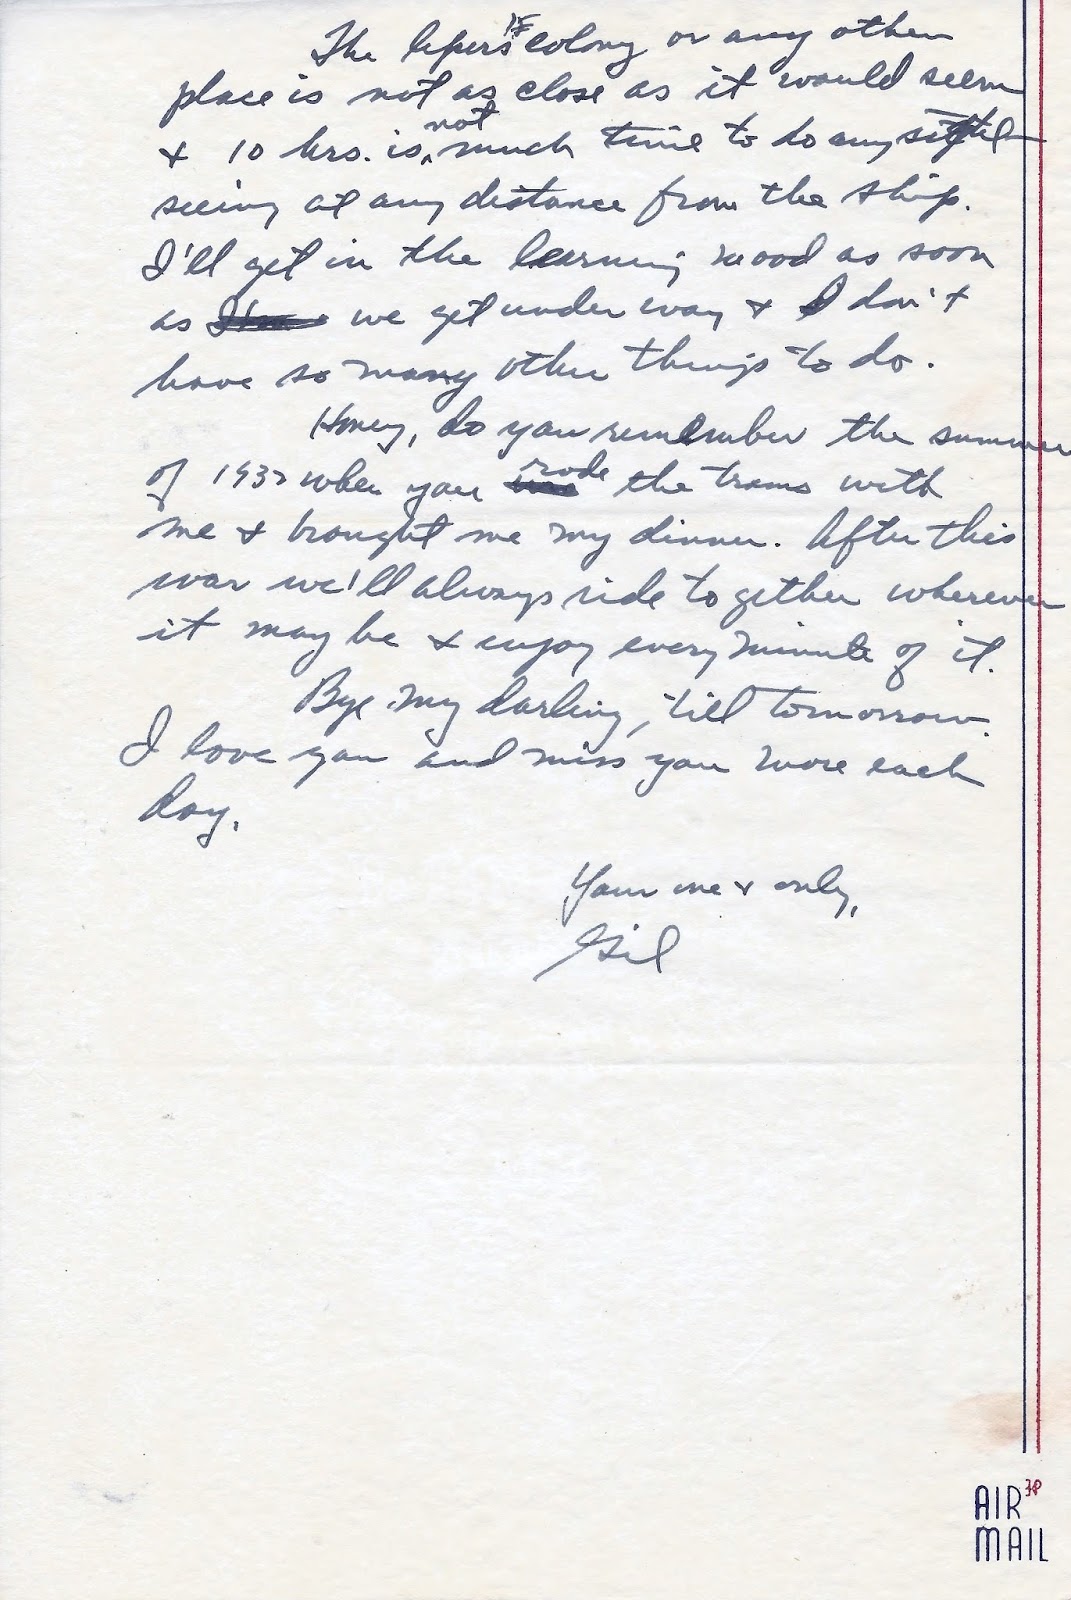 The lepers colony or any other
place is not as close as it would seem
& 10 hrs. is not much time to do any
seeing at any distance from the ship.
I'll get in the learning mood as soon
as we get under way & I don't
have so many other things to do.
Honey, do you remember the summer
of 1937 when you rode the trams with
me & brought me my dinner. After this
war we'll always ride together wherever
it may be & enjoy every minute of it.
Bye my darling, 'till tomorrow.
I love you and miss you more each
day.
Your one & only,
Gil
AIR
MAIL